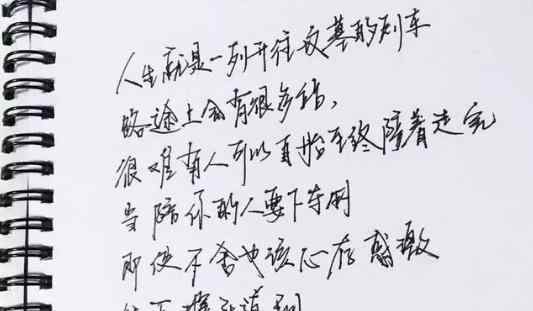 人生就是一列开往坟墓的列车
路途上会有很多站,
很难有人可以自始至终陪着走完
当陪你的人要下车时
即使不舍也该心存感激
然后挥手道别